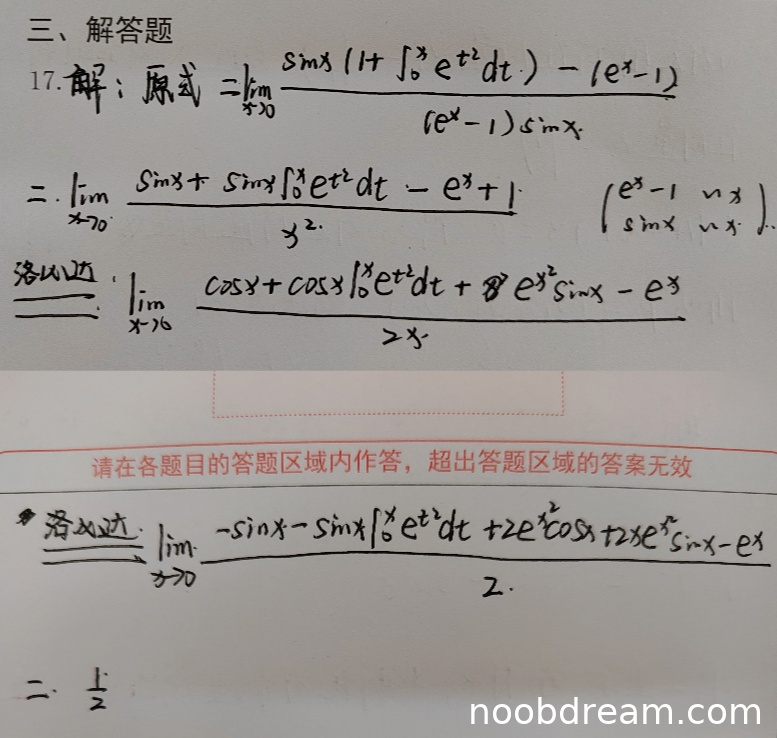 三、解答题
17. 解：原式 = lim x→0 (sinx (1+ ∫₀ˣ e^{t²} dt) - (eˣ-1)) / ((eˣ-1) sinx)
= lim x→0 (sinx + sinx ∫₀ˣ e^{t²} dt - eˣ + 1) / x² (eˣ-1 ~ x sinx ~ x)
洛必达 = lim x→0 (cosx + cosx ∫₀ˣ e^{t²} dt + e^{x²} sinx - eˣ) / 2x
请在各题目的答题区域内作答，超出答题区域的答案无效
洛必达 = lim x→0 (-sinx - sinx ∫₀ˣ e^{t²} dt + 2e^{x²} cosx + 2xe^{x²} sinx - eˣ) / 2.
= 1/2
noobdream.com